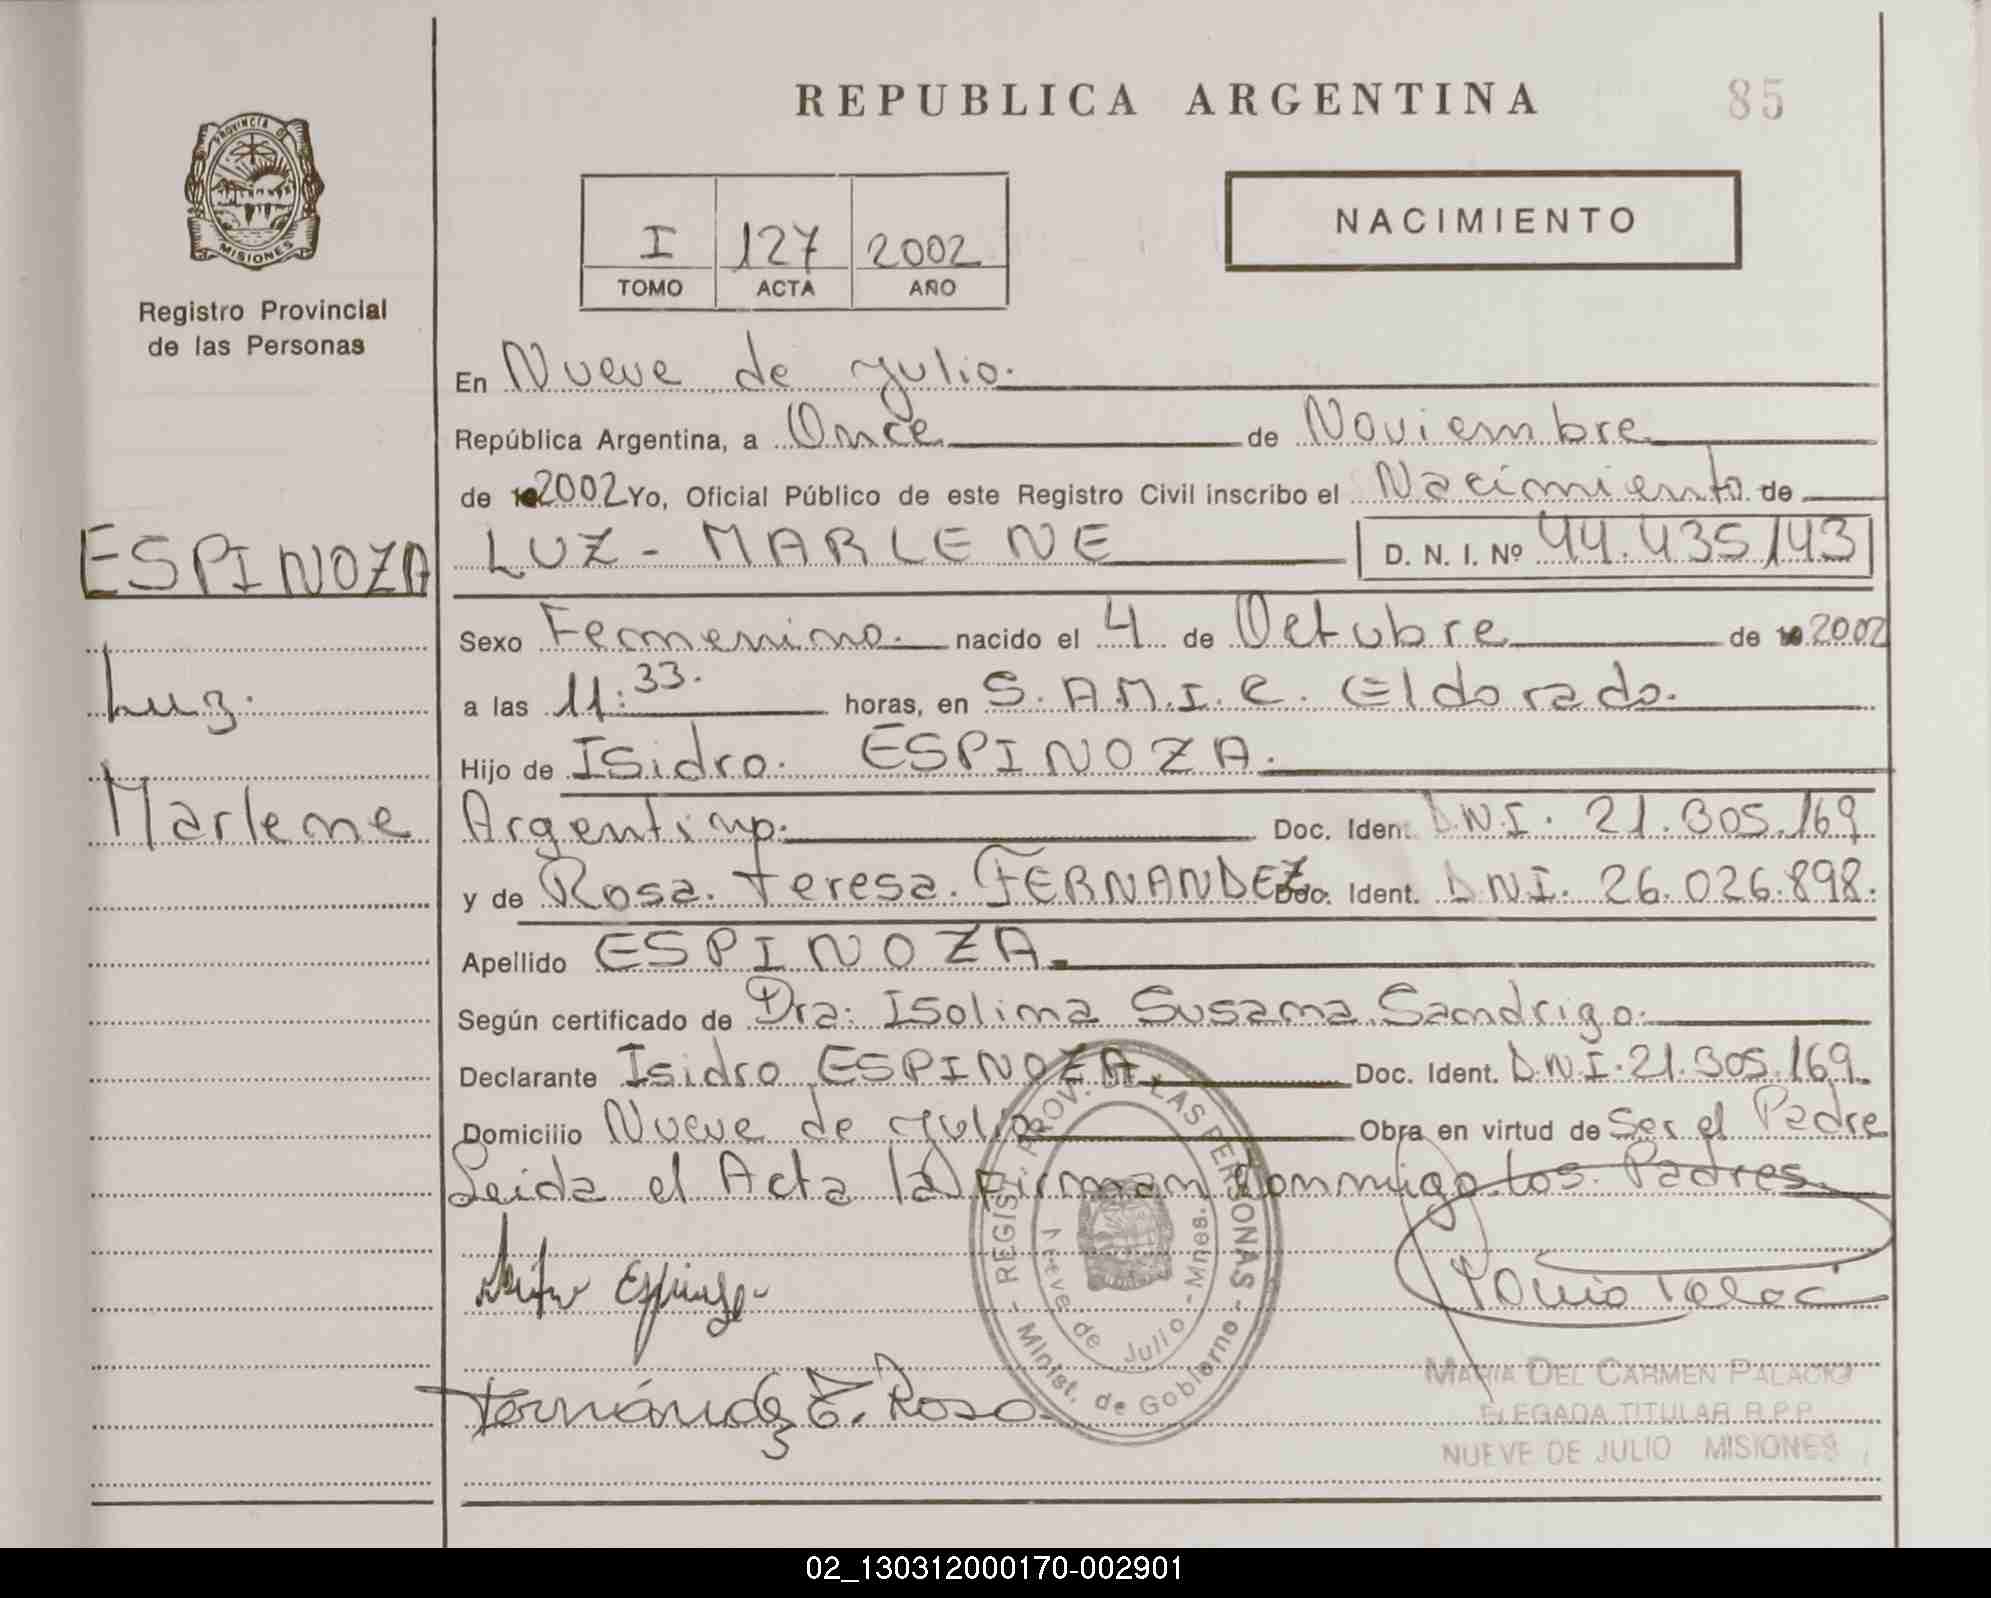 REPUBLICA ARGENTINA
85
PROVINCIA DE
MISIONES
Registro Provincial
de las Personas
I 127 2002
TOMO ACTA AÑO
NACIMIENTO
En Nueve de Julio.
República Argentina, a Once de Noviembre
de 2002 Yo, Oficial Público de este Registro Civil inscribo el Nacimiento de
ESPINOZA
LUZ - MARLENE D. N. I. Nº 44.435/143
Sexo Femenino. nacido el 4 de Octubre de 2002
Luz.
a las 11:33. horas, en S.A.M.I.C. Eldorado.
Hijo de Isidro. ESPINOZA.
Marlene
Argentino. Doc. Ident. DNI. 21.305.169
y de Rosa. Teresa. FERNANDEZ Doc. Ident. DNI. 26.026.898.
Apellido ESPINOZA.
Según certificado de Dra: Isolina Susana Sandrigo.
Declarante Isidro ESPINOZA. Doc. Ident. DNI. 21.305.169.
Domicilio Nueve de Julio Obra en virtud de Ser el Padre
Leida el Acta la Firman Conmigo los Padres.
REGIS. PROV. LAS PERSONAS
Minist. de Gobierno
Nueve de Julio - Mnes.
Espinoza
Fernández T. Rosa
MARIA DEL CARMEN PALACIO
DELEGADA TITULAR R.P.P.
NUEVE DE JULIO MISIONES
02_130312000170-002901